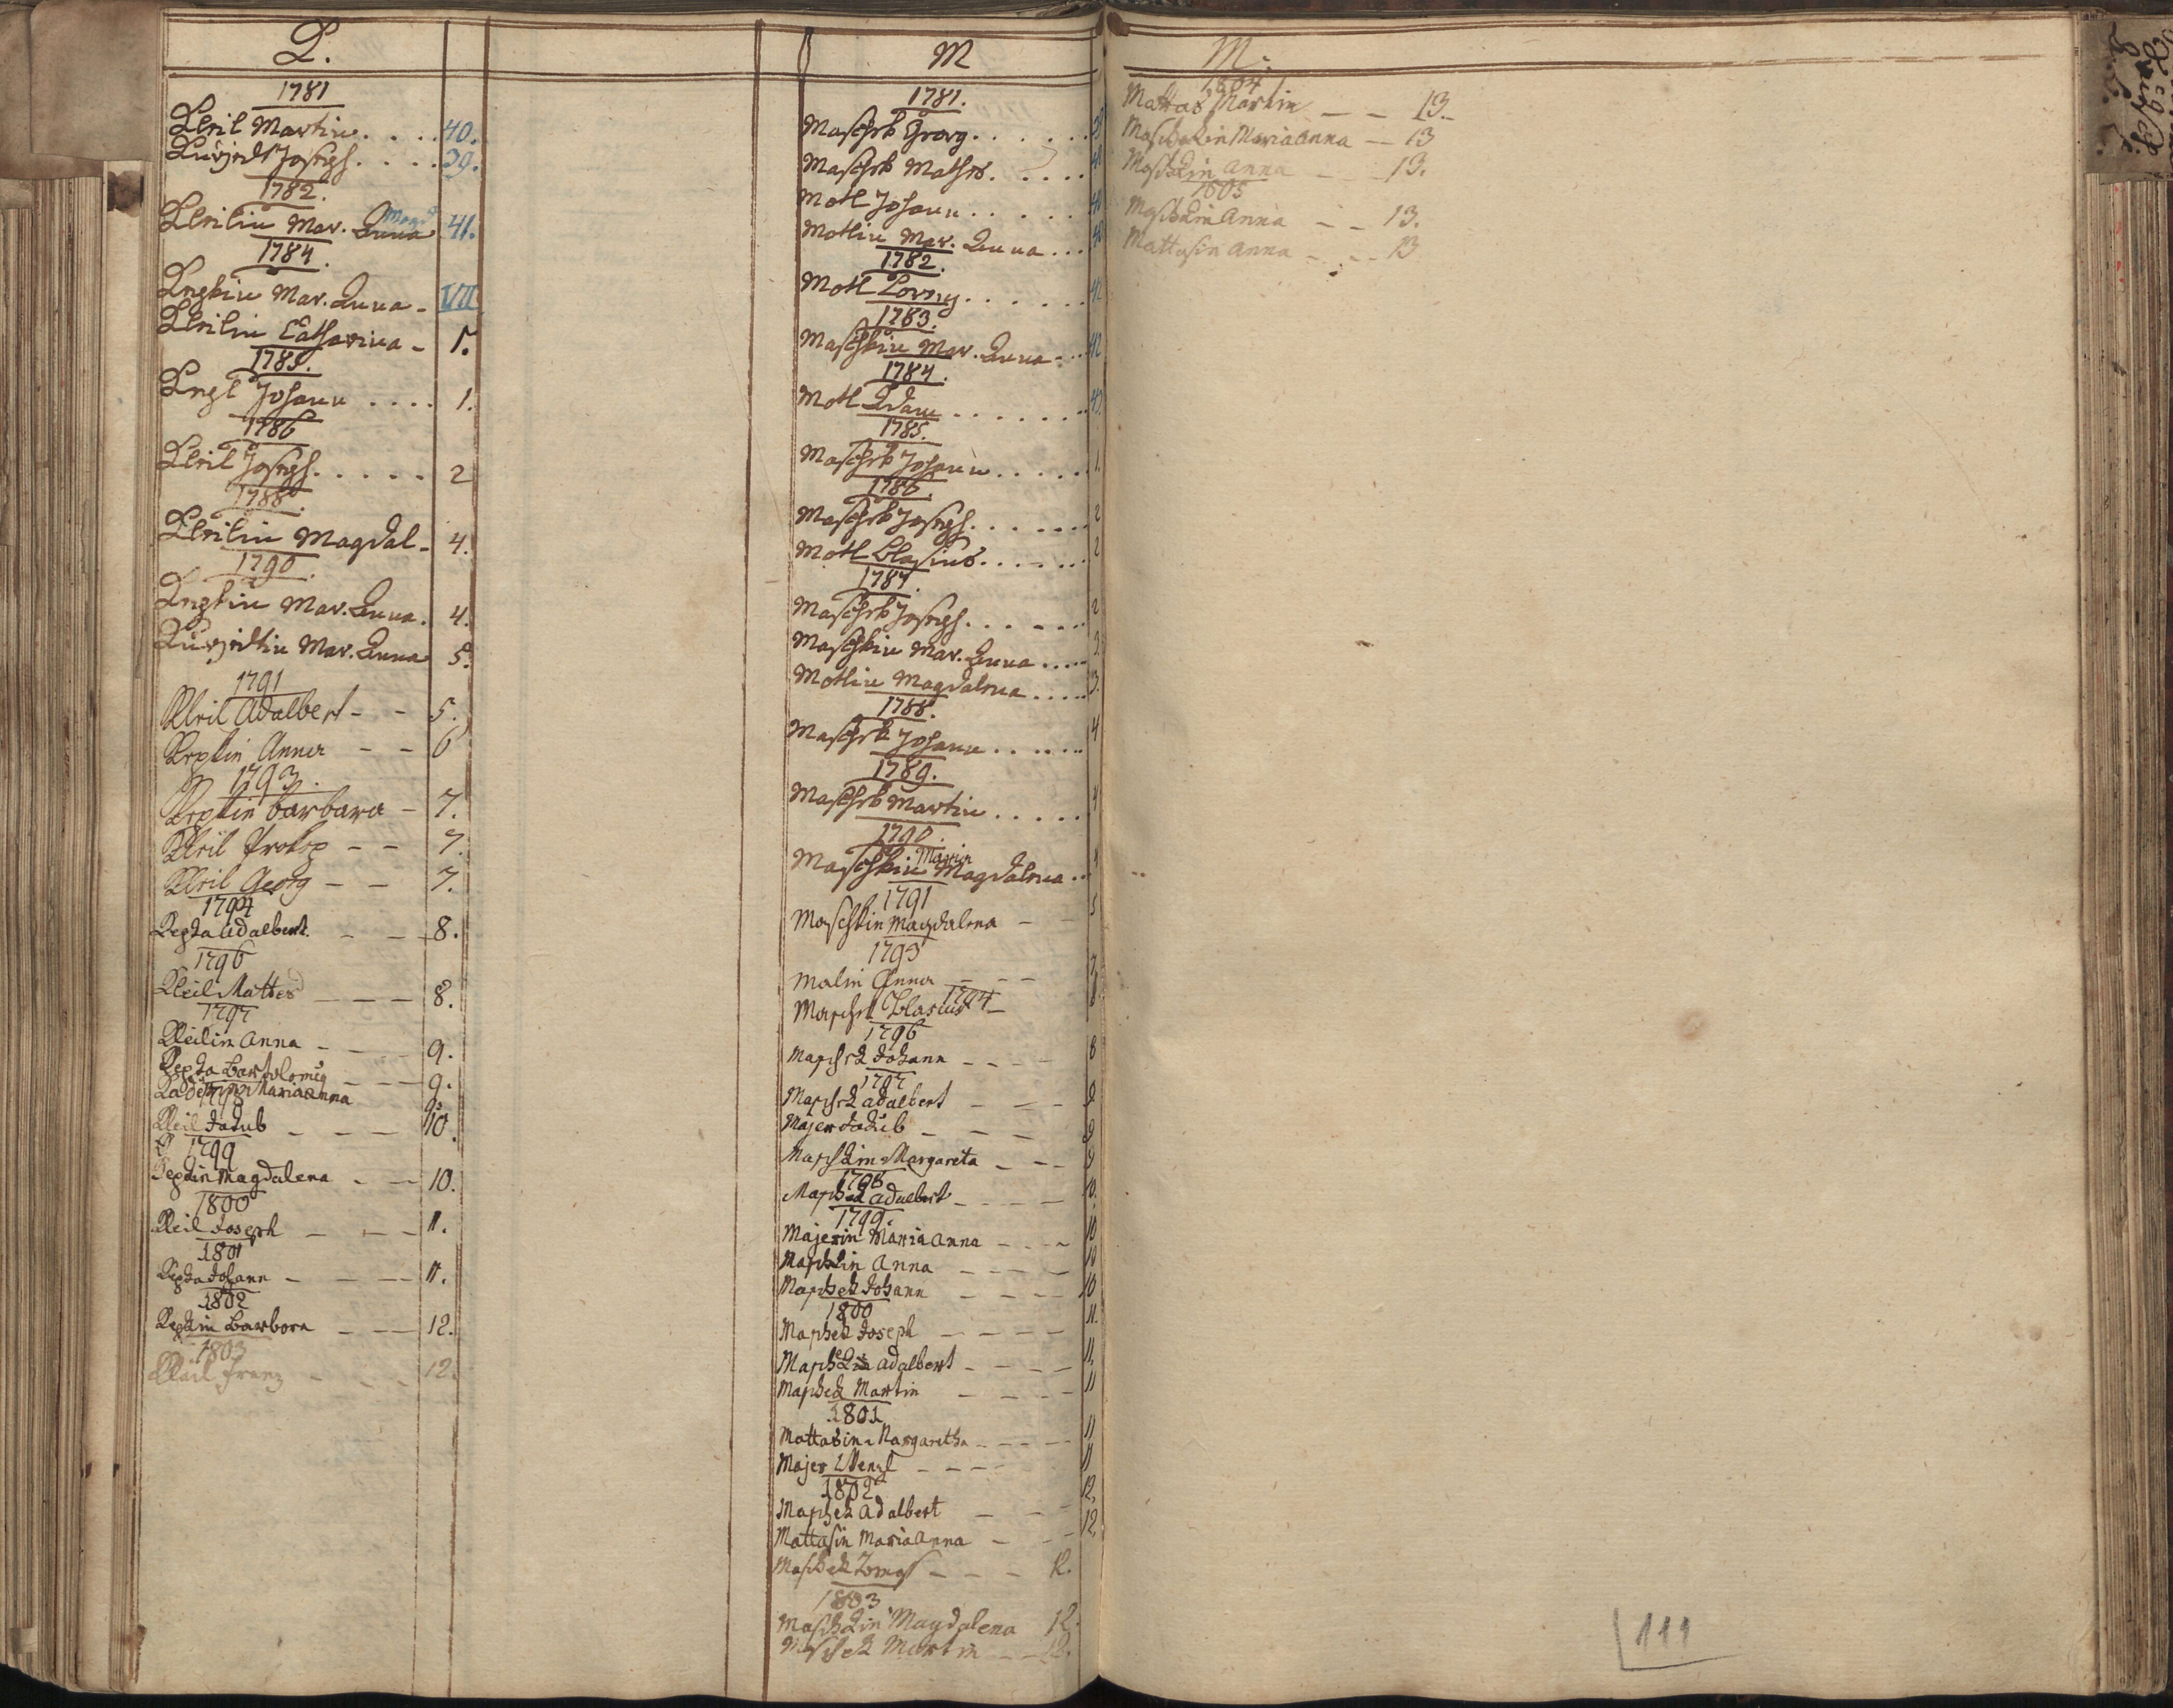 K.
1781
Kleil Martin. . . . 40.
Joseph. . . . 39.
1782.
Kleilin Mar. Anna Magd 41.
1784.
Kepkin Mar. Anna - VII
Kleilin Catharina - 1.
1785.
Johann . . . . 1.
1786
Kleil Joseph. . . . . 2
1788.
Kleilin Magdal- 4.
1790.
Kepkin Mar. Anna. 4.
Mar. Anna 5.
1791
Kleil Adalbert - - 5.
Kepkin Anna - - 6
1793.
Kepkin Barbara - 7.
Kleil Prokop - - 7.
Kleil Georg - - 7.
1794
Kepka Adalbert. - - 8.
1796
Kleil Mattes - - - 8.
1797
Kleilin Anna - - - 9.
Kepka Bartolomeg - - - 9.
Maria Anna 9.
Kleil Jakub - - - 10.
1799
Kepkin Magdalena - - 10.
1800
Kleil Joseph - - - 11.
1801
Kepka Johann - - - 11.
1802
Kepkin Barbora - - - 12.
1803
Kleil Franz - - - 12.
M
1781.
Maschek Georg. . . . . .
Maschek Mathes. . . . .
Motl Johann. . . . . 40
Motlin Mar. Anna . . . 40
1782.
Motl Lorenz. . . . . . 42
1783.
Maschkin Mar. Anna . . . 42
1784.
Motl Adam . . . . . . .
1785.
Maschek Johann . . . . . . 1.
1786.
Maschek Joseph. . . . . . 2
Motl Blasius. . . . . . 2
1787.
Maschek Joseph. . . . . . 2
Maschkin Mar. Anna . . . . . 3
Motlin Magdalena . . . . . 3.
1788.
Maschek Johann . . . . . . 4
1789.
Maschek Martin . . . . . 4
1790.
Maschkin Maria Magdalena . . 4
1791
Maschkin Magdalena - - 5
1793
Malin Anna - - - 7
1794
Maschek Blasius -
1796
Maschek Johann - - - - 8
1797
Maschek Adalbert - - - 9
Majer Jakub - - - 9
Maschkin Margareta - - - 9
1798
Maschek Adalbert - - - - 10.
1799.
Majerin Maria Anna - - - 10
Maschkin Anna - - - - 10
Maschek Johann - - - - 10
1800
Maschek Joseph - - - - 11.
Maschek Adalbert - - - - 11.
Maschek Martin - - - - 11
1801
Mattasin Margaretha - - - - 11
Majer Wenzl - - - - 11
1802
Maschek Adalbert - - - 12.
Mattasin Maria Anna - - - 12.
Maschek - - - 12.
1803
Maschkin Magdalena 12.
Maschek Martin - - 12.
M.
1804
Mattas Martin - - 13.
Maschekin Maria Anna - - 13
Maschkin Anna - - 13.
1805
Maschkin Anna - - 13.
Mattasin Anna - - - 13
111